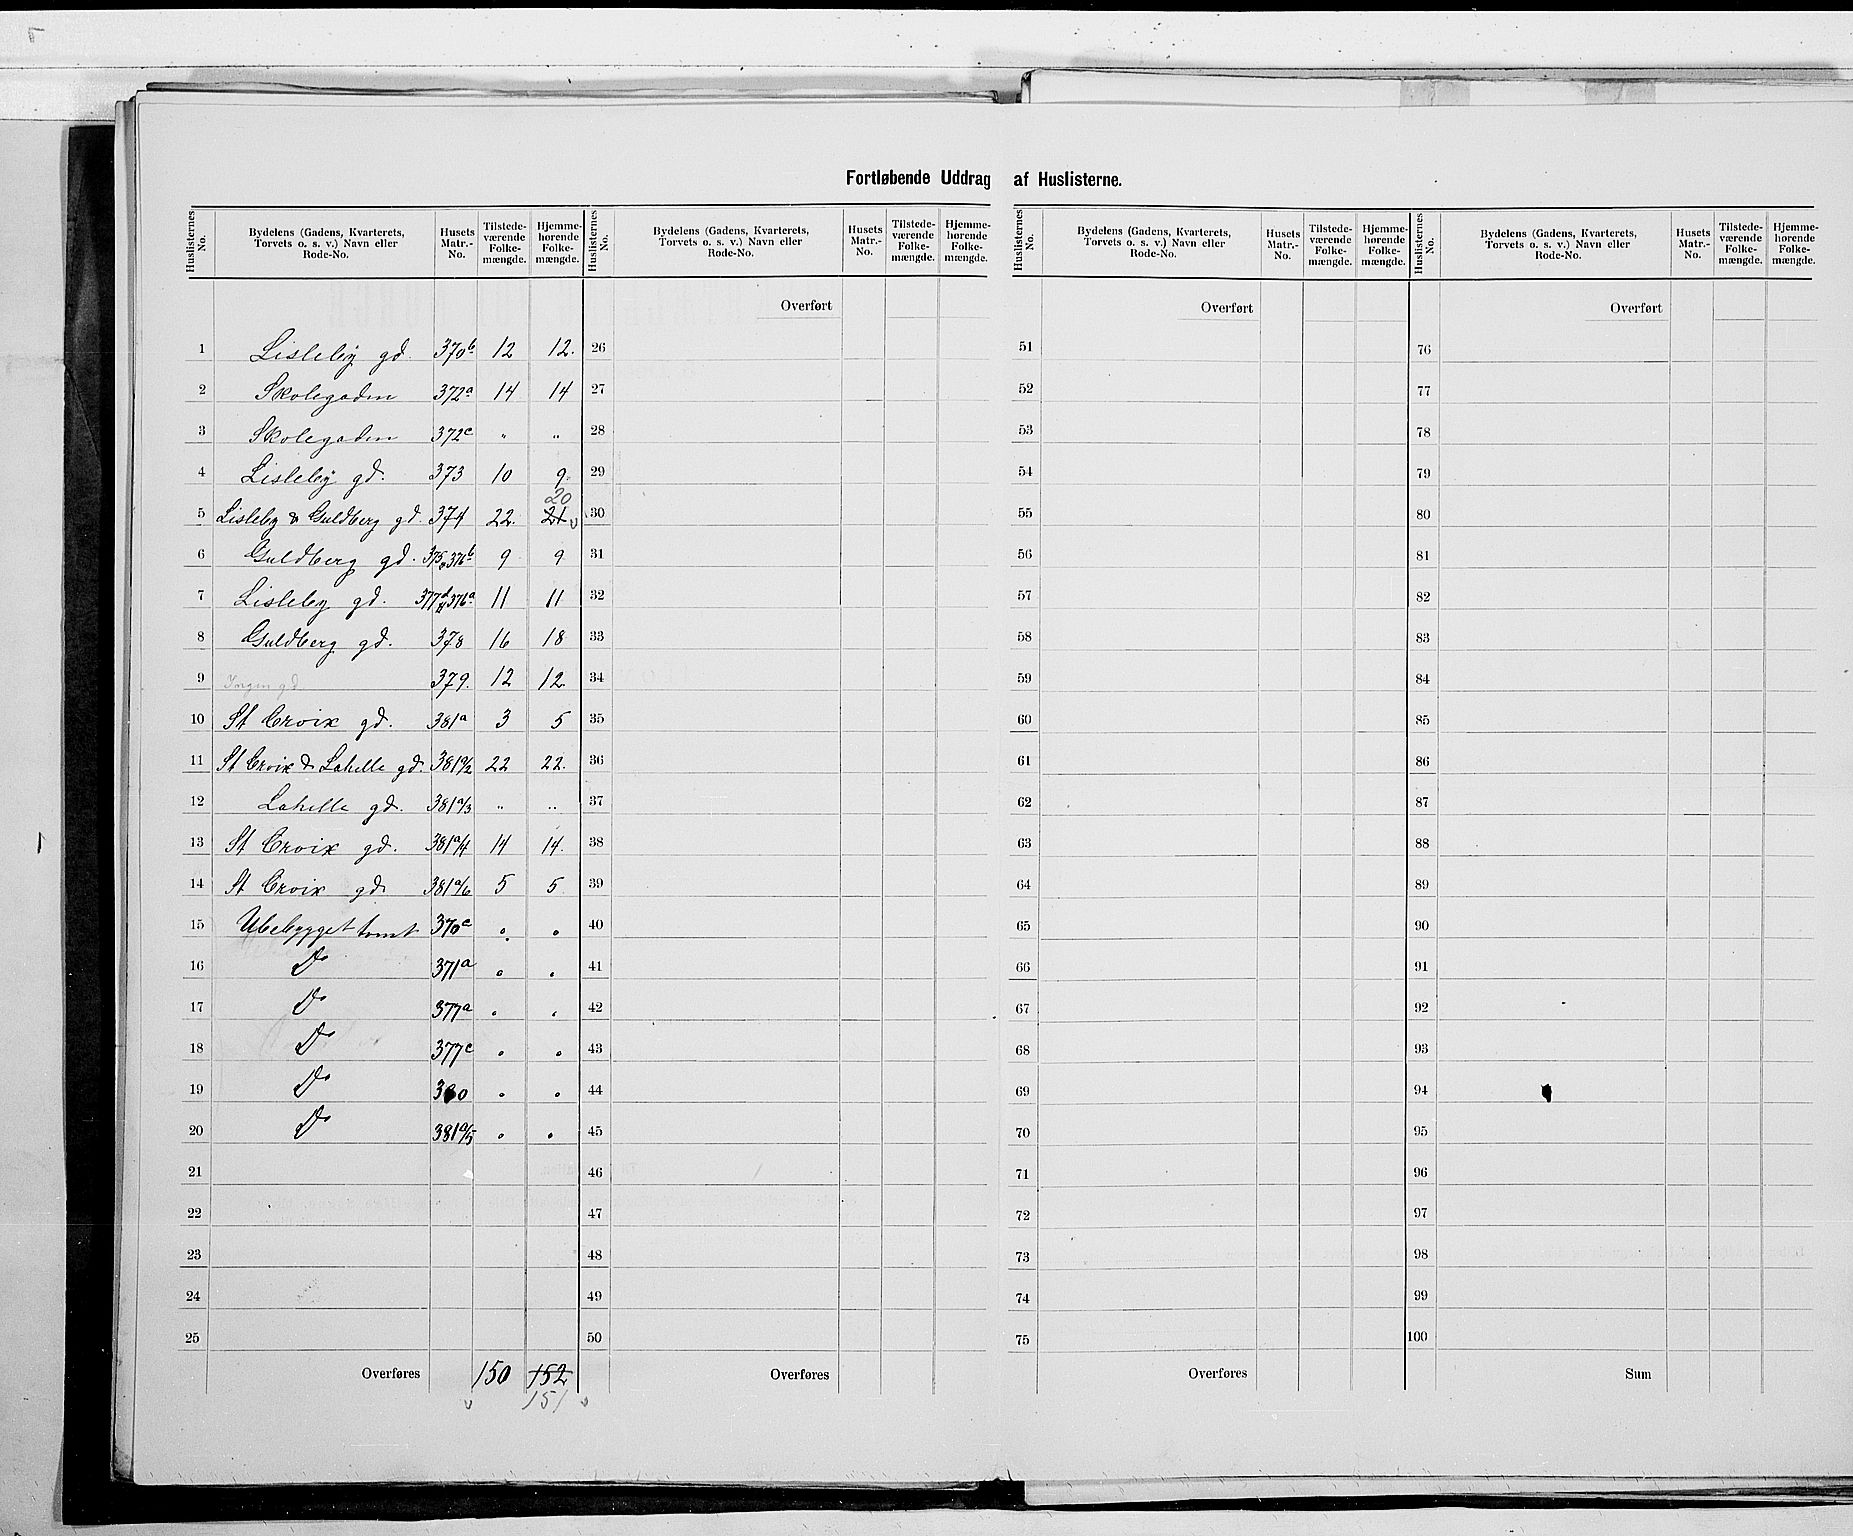 Fortløbende Uddrag af Huslisterne.
Huslisternes No. | Bydelens (Gadens, Kvarterets, Torvets o. s. v.) Navn eller Rode-No. | Husets Matr.-No. | Tilstede-værende Folke-mængde. | Hjemme-hørende Folke-mængde. | Huslisternes No. | Bydelens (Gadens, Kvarterets, Torvets o. s. v.) Navn eller Rode-No. | Husets Matr.-No. | Tilstede-værende Folke-mængde. | Hjemme-hørende Folke-mængde. | Huslisternes No. | Bydelens (Gadens, Kvarterets, Torvets o. s. v.) Navn eller Rode-No. | Husets Matr.-No. | Tilstede-værende Folke-mængde. | Hjemme-hørende Folke-mængde. | Huslisternes No. | Bydelens (Gadens, Kvarterets, Torvets o. s. v.) Navn eller Rode-No. | Husets Matr.-No. | Tilstede-værende Folke-mængde. | Hjemme-hørende Folke-mængde.
Overført Overført Overført
1 Lisleby gd. 370b 12 12. 26 51 76
2 Skolegaden 372a 14 14 27 52 77
3 Skolegaden 372c " " 28 53 78
4 Lisleby gd. 373 10 9. 29 54 79
20
5 Lisleby & Guldberg gd. 374 22. 21 30 55 80
6 Guldberg gd. 375 & 376b 9 9 31 56 81
7 Lisleby gd. 377d & 376a 11 11 32 57 82
8 Guldberg gd. 378 16 18 33 58 83
9 Ingen gd 379. 12 12. 34 59 84
10 St Croix gd. 381a 3 5 35 60 85
11 St Croix & Lahelle gd. 381a/2 22 22. 36 61 86
12 Lahelle gd. 381a/3 " " 37 62 87
13 St Croix gd. 381a/4 14 14. 38 63 88
14 St Croix gd. 381a/6 5 5 39 64 89
15 Ubebygget tomt 370c " " 40 65 90
16 Do 371a " " 41 66 91
17 Do 377a " " 42 67 92
18 Do 377c " " 43 68 93
19 Do 380 " " 44 69 94
20 Do 381a/5 " " 45 70 95
21 46 71 96
22 47 72 97
23 48 73 98
24 49 74 99
25 50 75 100
Overføres 150 152 Overføres Overføres Sum
151